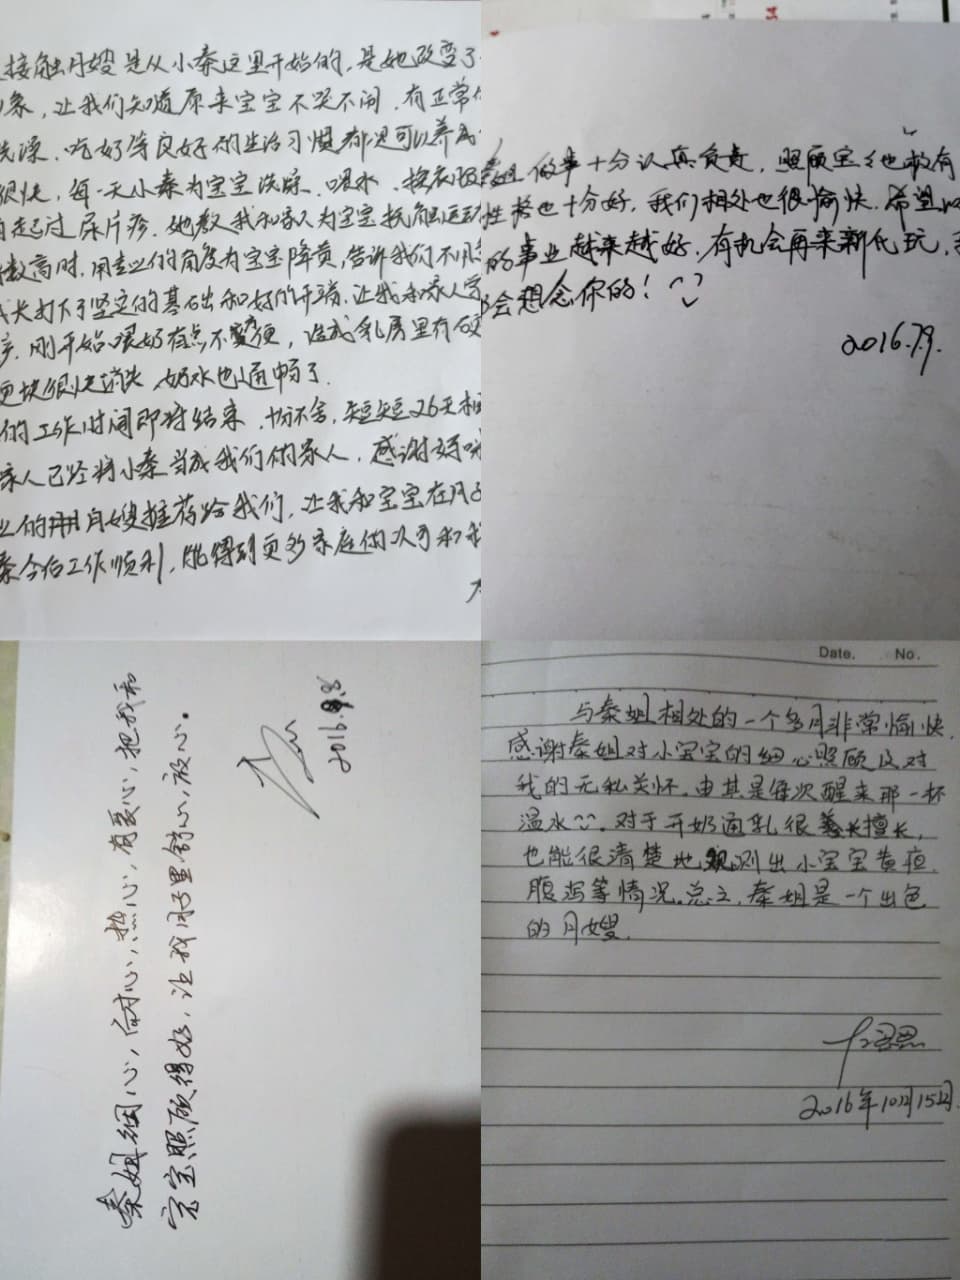 接触月嫂是从小秦这里开始的,是她改变了
象,让我们知道原来宝宝不哭不闹,有正常
洗澡、吃奶等良好的生活习惯都是可以养成
很快,每一天小秦为宝宝洗澡、喂水、换衣服
起过尿片疹.她教我和家人为宝宝抚触运动
数高时,用专业的角度为宝宝降黄,告诉我们不用
成长打下了坚定的基础和好的开端,让我和家人
刚开始喂奶有点不方便,造成乳房里有
硬块很快消失,奶水也通畅了.
的工作时间即将结束,十分不舍,短短26天
家人已经将小秦当成我们的家人,感谢
业的月嫂推荐给我们,让我和宝宝在月子
秦今后工作顺利,能得到更多家庭的认可和
做事十分认真负责,照顾宝宝也教有
性格也十分好,我们相处也很愉快.希望以
的事业越来越好,有机会再来新化玩,
会想念你的!
2016.7.9.
秦姐细心,耐心,热心,有爱心,把我和
宝宝照顾得好,让我月子里舒心,放心。
2016.9.8
Date. No.
与秦姐相处的一个多月非常愉快.
感谢秦姐对小宝宝的细心照顾及对
我的无私关怀。由其是每次醒来那一杯
温水.对于开奶通乳很擅长,
也能很清楚地观测出小宝宝黄疸.
腹泻等情况。总之,秦姐是一个出色
的月嫂.
2016年10月15日.